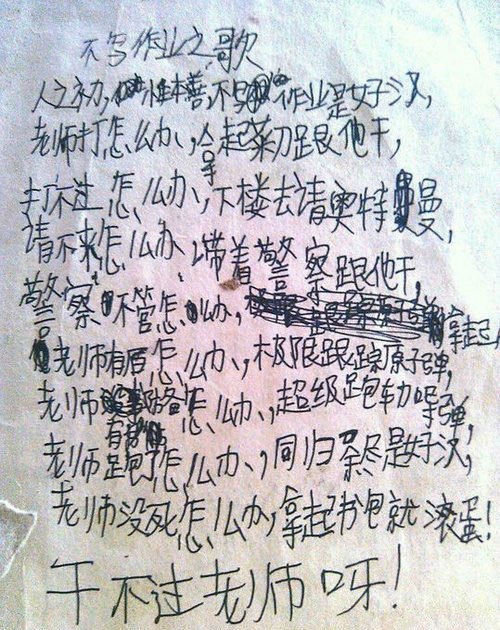 不写作业之歌
人之初,性本善,不写作业是好汉,
老师打怎么办,拿起菜刀跟他干,
打不过怎么办,下楼去请奥特曼,
请不来怎么办,带着警察跟他干,
警察不管怎么办,拿起
老师有盾怎么办,极限跟踪原子弹,
老师有怎么办,超级跑
老师跑了怎么办,同归于尽是好汉,
老师没死怎么办,拿起书包就滚蛋!
干不过老师呀!